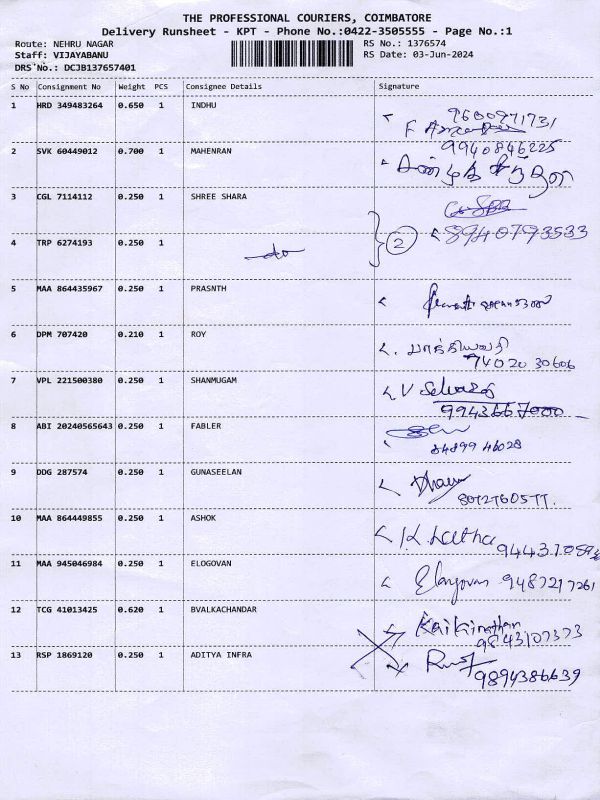 THE PROFESSIONAL COURIERS, COIMBATORE
Delivery Runsheet - KPT - Phone No.:0422-3505555 - Page No.:1
Route: NEHRU NAGAR
RS No.: 1376574
Staff: VIJAYABANU
RS Date: 03-Jun-2024
DRS No.: DCJB137657401
S No Consignment No Weight PCS Consignee Details Signature
1 HRD 349483264 0.650 1 INDHU
9600971731
2 SVK 60449012 0.700 1 MAHENRAN 9940846225
3 CGL 7114112 0.250 1 SHREE SHARA
4 TRP 6274193 0.250 1 do 2 8940793533
5 MAA 864435967 0.250 1 PRASNTH
6 DPM 707420 0.210 1 ROY
74020 30606
7 VPL 221500380 0.250 1 SHANMUGAM V
9943667000
8 ABI 20240565643 0.250 1 FABLER
84899 46028
9 DDG 287574 0.250 1 GUNASEELAN
10 MAA 864449855 0.250 1 ASHOK K. Latha
11 MAA 945046984 0.250 1 ELOGOVAN Elangovan 9487217261
12 TCG 41013425 0.620 1 BVALKACHANDAR
9843107373
13 RSP 1869120 0.250 1 ADITYA INFRA
9894386639